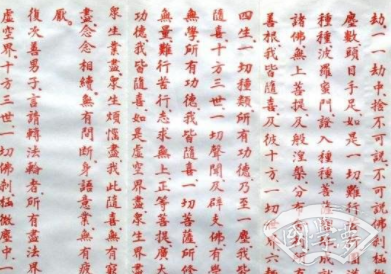 劫一一劫中捨不可說不可說佛刹極微
塵數頭目手足如是一切難行苦
種種波羅蜜門證入種種菩薩
諸佛無上菩提及般涅槃分布
善根我皆隨喜及彼十方一切世界六趣
四生一切種類所有功德乃至一塵我皆
隨喜十方三世一切聲聞及辟支佛有學
無學所有功德我皆隨喜一切菩薩所修
無量難行苦行志求無上正等菩提廣大
功德我皆隨喜如是虛空界盡眾生界盡
眾生業盡眾生煩惱盡我此隨喜無有窮
盡念念相續無有間斷身語意業無有疲
厭
復次善男子言請轉法輪者所有盡法界
虛空界十方三世一切佛刹極微塵中一
國學夢